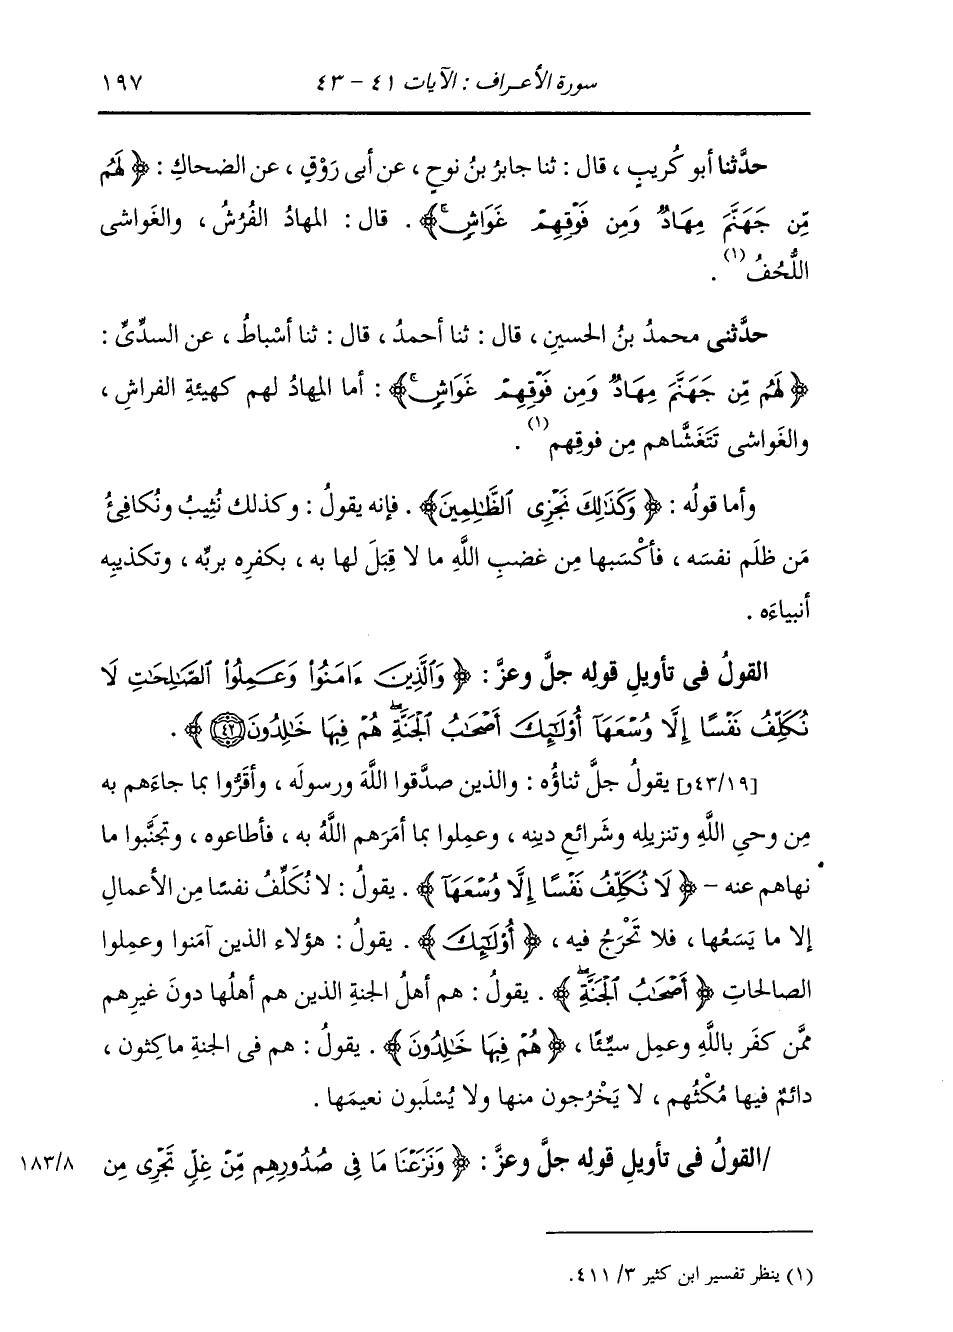 سورة الأعراف : الآيات ٤١ - ٤٣ ١٩٧
حدَّثنا أبو كُريبٍ ، قال : ثنا جابرُ بنُ نوحٍ ، عن أبى رَوْقٍ ، عن الضحاكِ : ﴿ لَهُم
مِّن جَهَنَّمَ مِهَادٌ وَمِن فَوْقِهِمْ غَوَاشٍۚ ﴾ . قال : المهادُ الفُرُشُ ، والغَواشى
اللُّحُفُ(١) .
حدَّثنى محمدُ بنُ الحسينِ ، قال : ثنا أحمدُ ، قال : ثنا أسْباطُ ، عن السدِّىِّ :
﴿ لَهُم مِّن جَهَنَّمَ مِهَادٌ وَمِن فَوْقِهِمْ غَوَاشٍۚ ﴾ : أما المِهادُ لهم كهيئةِ الفراشِ ،
والغَواشى تَتَغَشَّاهم مِن فوقِهم(١) .
وأما قولُه : ﴿ وَكَذَٰلِكَ نَجْزِى ٱلظَّٰلِمِينَ ﴾ . فإنه يقولُ : وكذلك نُثِيبُ ونُكافِئُ
مَن ظلَم نفسَه ، فأكْسَبها مِن غضبِ اللَّهِ ما لا قِبَلَ لها به ، بكفرِه بربِّه ، وتكذيبِه
أنبياءَه .
القولُ فى تأويلِ قولِه جلَّ وعزَّ : ﴿ وَٱلَّذِينَ ءَامَنُوا۟ وَعَمِلُوا۟ ٱلصَّٰلِحَٰتِ لَا
نُكَلِّفُ نَفْسًا إِلَّا وُسْعَهَآ أُو۟لَٰٓئِكَ أَصْحَٰبُ ٱلْجَنَّةِۖ هُمْ فِيهَا خَٰلِدُونَ ٤٢ ﴾ .
[٤٣/١٩و] يقولُ جلَّ ثناؤُه : والذين صدَّقوا اللَّهَ ورسولَه ، وأقَرُّوا بما جاءَهم به
مِن وحىِ اللَّهِ وتنزيلِه وشَرائعِ دينِه ، وعمِلوا بما أمَرَهم اللَّهُ به ، فأطاعوه ، وتجنَّبوا ما
نهاهم عنه - ﴿ لَا نُكَلِّفُ نَفْسًا إِلَّا وُسْعَهَآ ﴾ . يقولُ : لا نُكَلِّفُ نفسًا مِن الأعمالِ
إلا ما يَسَعُها ، فلا تَحْرَجُ فيه ، ﴿ أُو۟لَٰٓئِكَ ﴾ . يقولُ : هؤلاء الذين آمَنوا وعمِلوا
الصالحاتِ ﴿ أَصْحَٰبُ ٱلْجَنَّةِۖ ﴾ . يقولُ : هم أهلُ الجنةِ الذين هم أهلُها دونَ غيرِهم
ممَّن كفَر باللَّهِ وعمِل سيِّئًا ، ﴿ هُمْ فِيهَا خَٰلِدُونَ ﴾ . يقولُ : هم فى الجنةِ ماكِثون ،
دائمٌ فيها مُكْثُهم ، لا يَخْرُجون منها ولا يُسْلَبون نعيمَها .
/القولُ فى تأويلِ قولِه جلَّ وعزَّ : ﴿ وَنَزَعْنَا مَا فِى صُدُورِهِم مِّنْ غِلٍّ تَجْرِى مِن ١٨٣/٨
(١) ينظر تفسير ابن كثير ٣/ ٤١١.